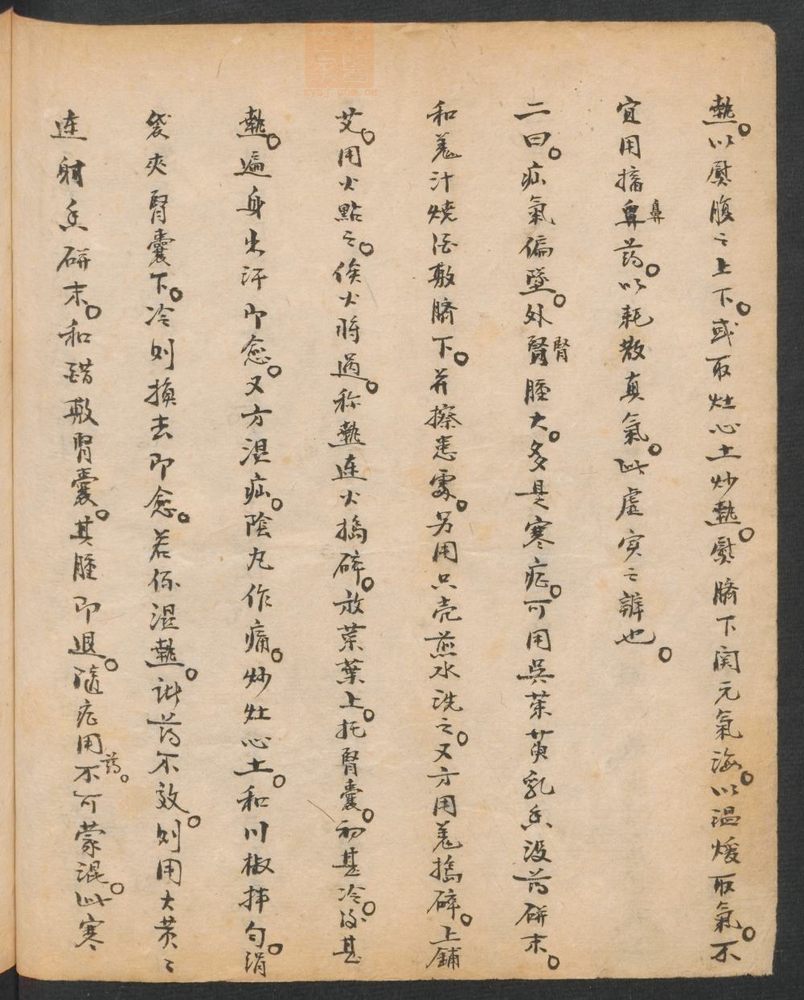 熱。以熨腹之上下。或取灶心土炒熱。熨臍下関元氣海。以温煖取氣。不
宜用搐鼻鼻药。以耗散真氣。此虚实之辨也。
二曰。疝氣偏墜。外腎腎腫大。多是寒症。可用吳茱萸乳香没药研末。
和羗汁燒酒敷臍下。并擦患處。另用只壳煎水洗之。又方用羗搗碎。上鋪
艾。用火點之。俟火将過。称熱連火搗碎。放菜葉上。托腎囊。初甚冷。後甚
熱。遍身出汗即愈。又方湿疝。陰丸作痛。炒灶心土。和川椒拌匀。絹
袋夾腎囊下。冷则換去即愈。若係湿熱。此药不效。则用大黄
連射香研末。和醋敷腎囊。其腫即退。隨症用药。不可蒙混。此寒